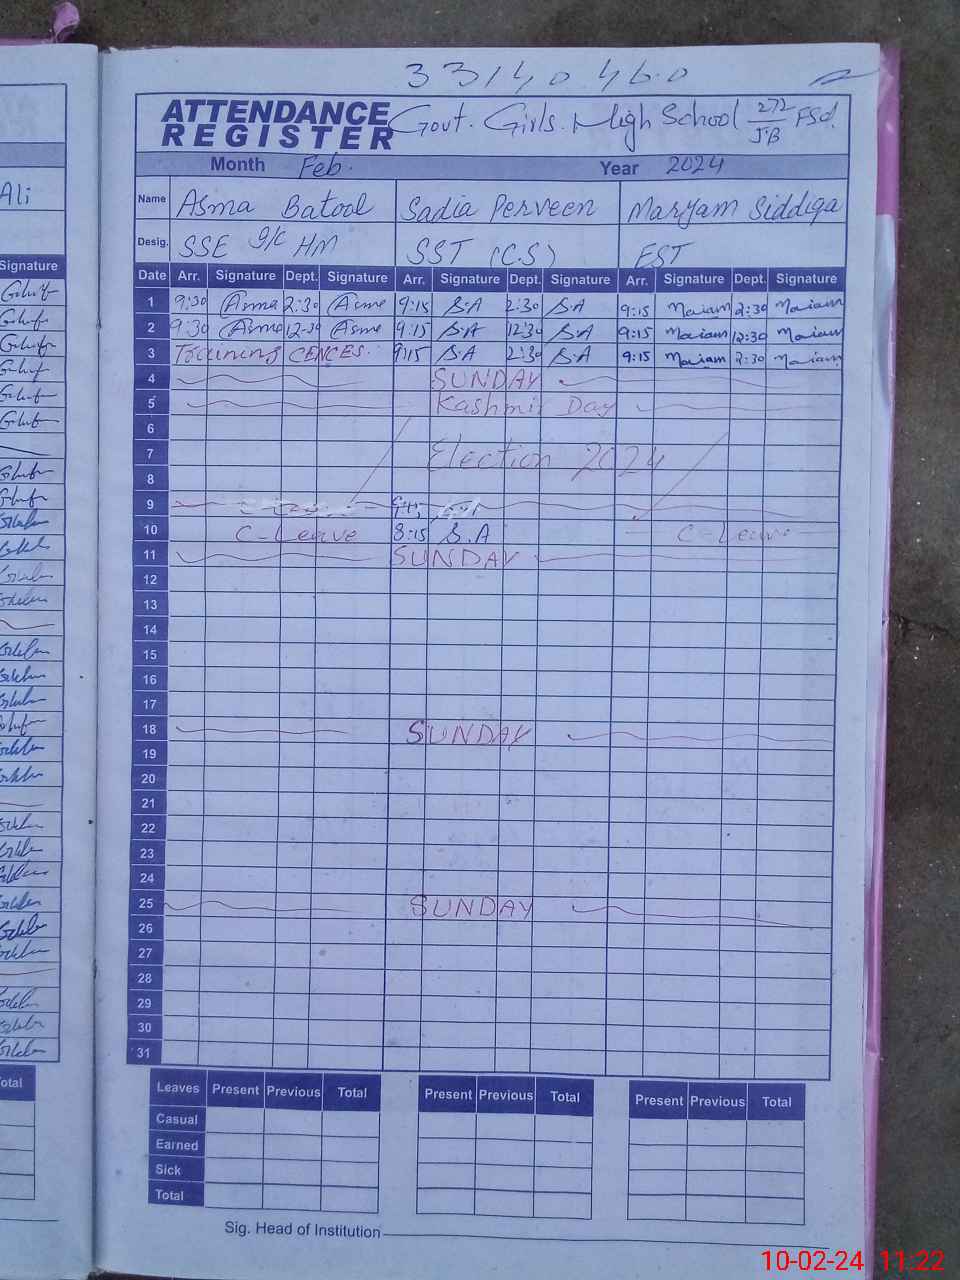 33140460
ATTENDANCE REGISTER Govt. Girls. High School 272/J.B FSd.
Month Feb. Year 2024
Ali
Name Asma Batool Sadia Perveen Maryam Siddiqa
Desig. SSE I/C HM SST (C.S) EST
Signature
Date Arr. Signature Dept. Signature Arr. Signature Dept. Signature Arr. Signature Dept. Signature
1 9:30 Asma 2:30 Asma 9:15 S.A 2:30 S.A 9:15 Mariam 2:30 Mariam
2 9:30 Asma 12-30 Asma 9:15 S.A 12:30 S.A 9:15 Mariam 12:30 Mariam
3 Training CENCES. 9:15 S.A 2:30 S.A 9:15 Mariam 2:30 Mariam
4 SUNDAY
5 Kashmir Day
6
7 Election 2024
8
9 9:15
10 C-Leave 8:15 S.A C-Leave
11 SUNDAY
12
13
14
15
16
17
18 SUNDAY
19
20
21
22
23
24
25 SUNDAY
26
27
28
29
30
31
Total
Leaves Present Previous Total Present Previous Total Present Previous Total
Casual
Earned
Sick
Total
Sig. Head of Institution
10-02-24 11:22